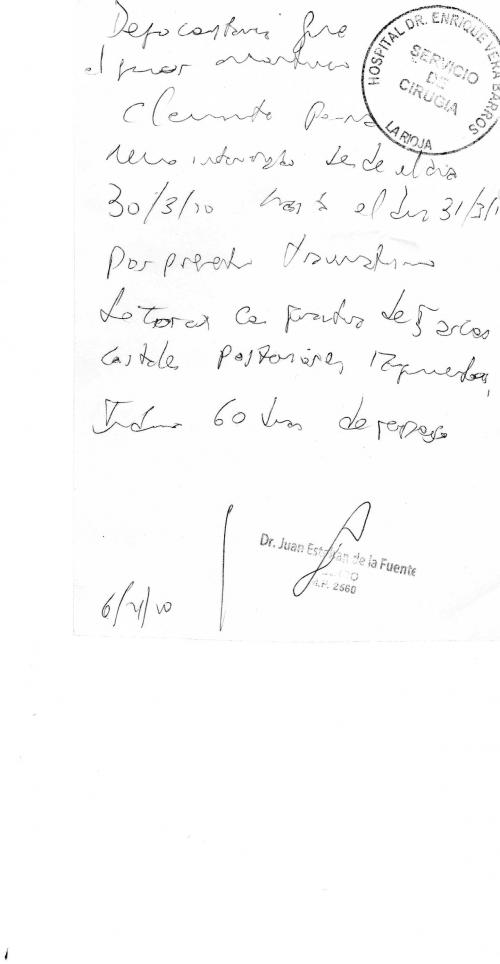 Dejo constancia que
el señor Martinez
Clemente perma
neció internado desde el dia
30/3/10 hasta el dia 31/3/1
por presentar traumatismo
de torax con fractura de 5 arcos
costales posteriores izquierdos,
Indico 60 dias de reposo
6/4/10
HOSPITAL DR. ENRIQUE VERA BARROS
SERVICIO
DE
CIRUGIA
LA RIOJA
Dr. Juan Esteban de la Fuente
M.P. 2660